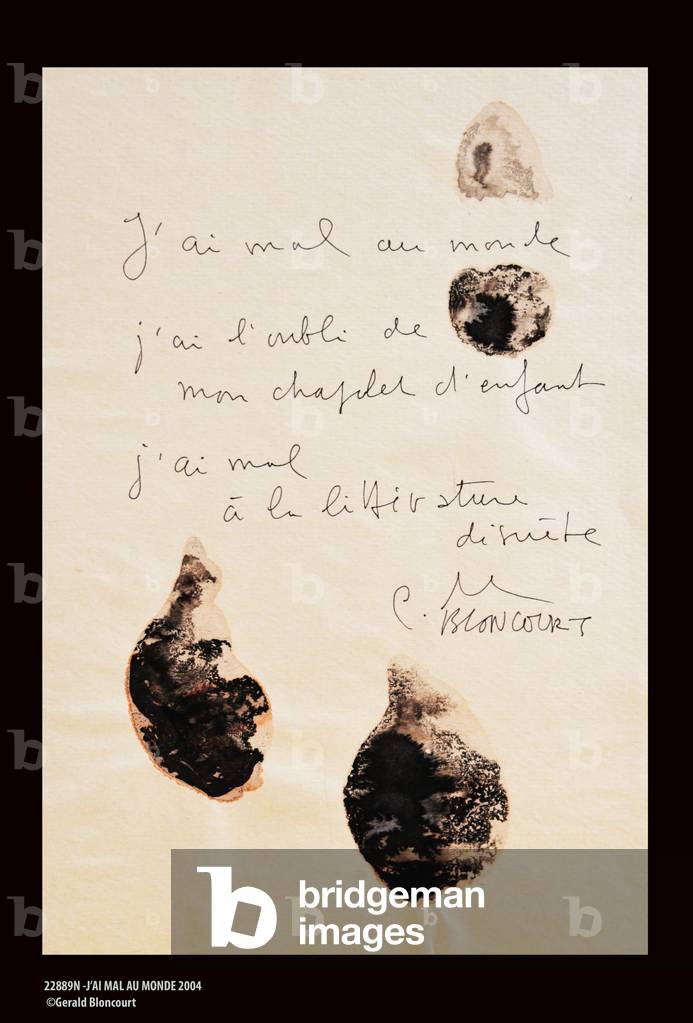 J'ai mal au monde
j'ai l'oubli de
mon chapelet d'enfant
j'ai mal
à la littérature
discrète
BLONCOURT
bridgeman
images
22889N -J'AI MAL AU MONDE 2004
©Gerald Bloncourt